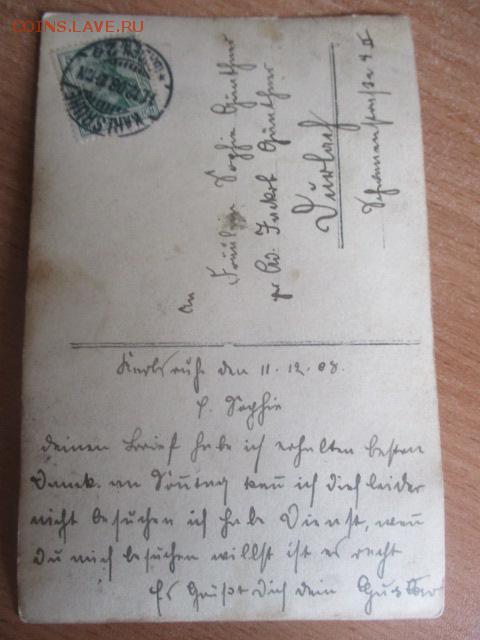 COINS.LAVE.RU
KARLSRUHE
An
Fräulein Sophie Günther
Günther
Durlach
Karlsruhe den 11.12.08.
l. Sophie
deinen Brief habe ich erhalten besten
Danck. an Sontag kan ich dich leider
nicht besuchen ich habe Dienst, wen
du mich besuchen willst ist es recht
Es Grüßt Dich dein Gustav